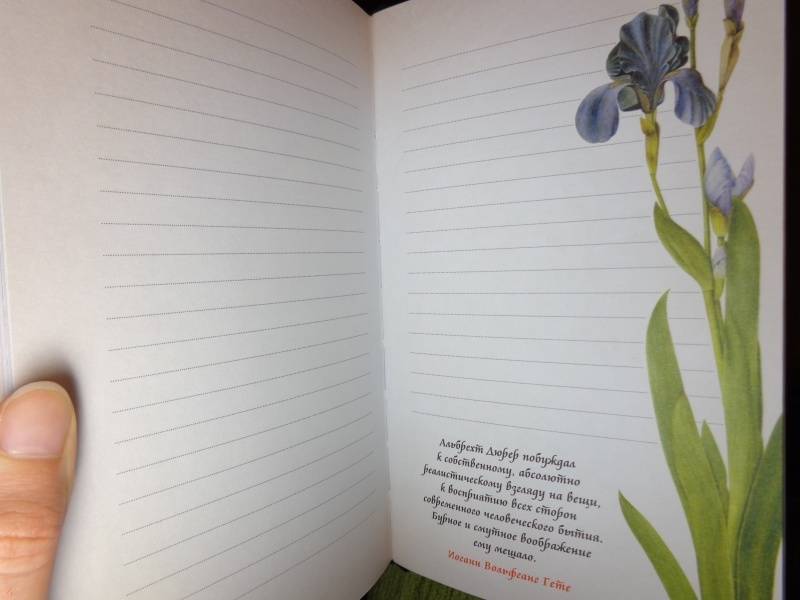 Альбрехт Дюрер побуждал
к собственному, абсолютно
реалистическому взгляду на вещи,
к восприятию всех сторон
современного человеческого бытия.
Бурное и смутное воображение
ему мешало.
Иоганн Вольфганг Гете